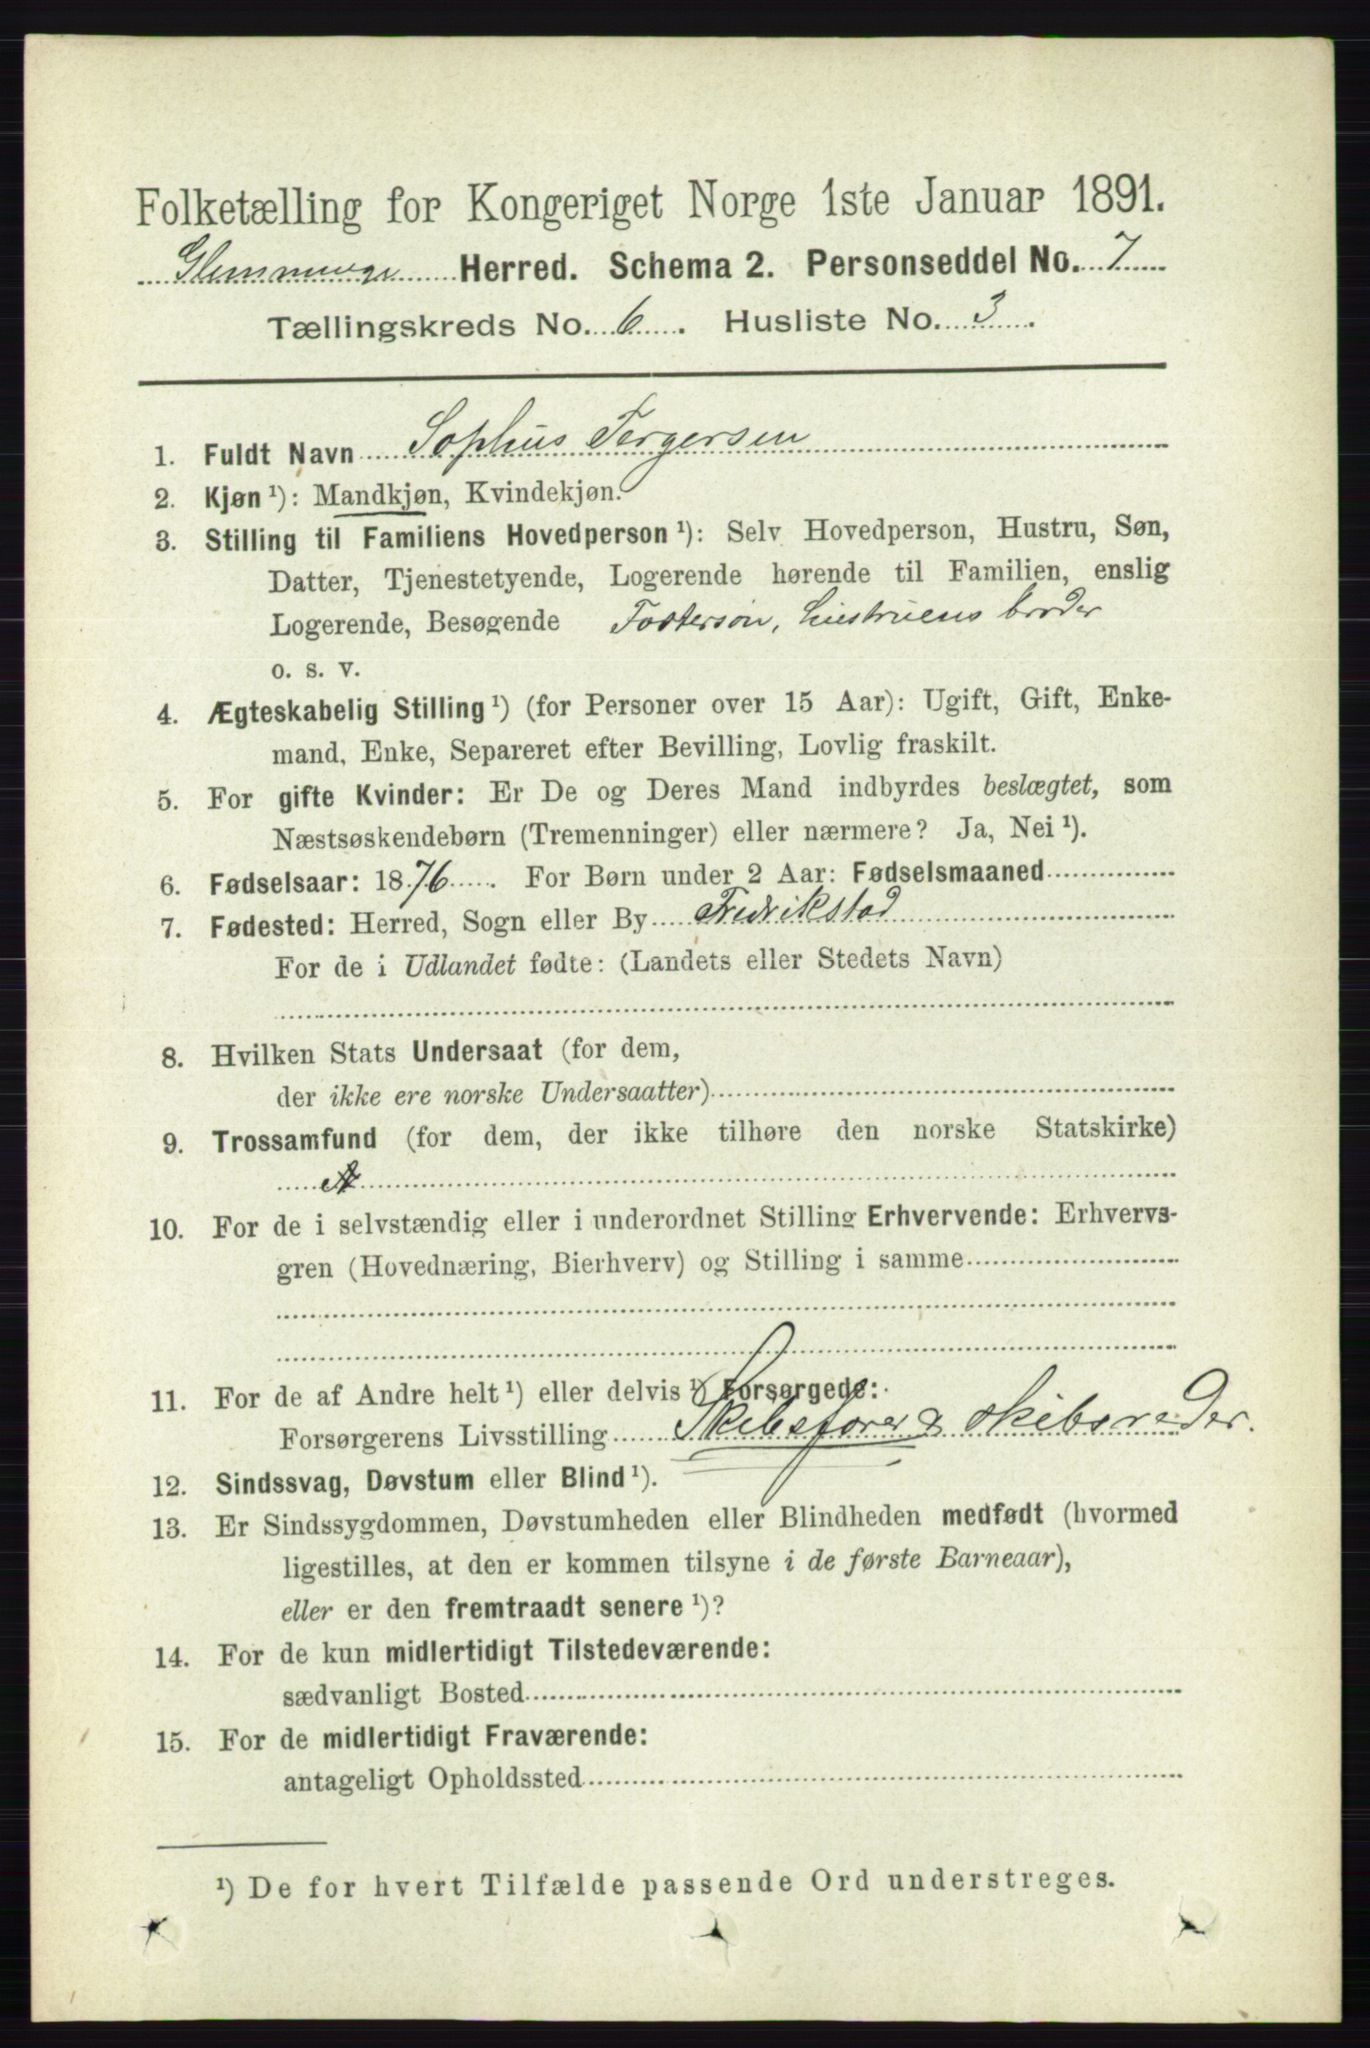 Folketælling for Kongeriget Norge 1ste Januar 1891.
Glemminge Herred. Schema 2. Personseddel No. 7
Tællingskreds No. 6. Husliste No. 3.
1. Fuldt Navn Sophus Tergersen
2. Kjøn ¹): Mandkjøn, Kvindekjøn.
3. Stilling til Familiens Hovedperson ¹): Selv Hovedperson, Hustru, Søn,
Datter, Tjenestetyende, Logerende hørende til Familien, enslig
Logerende, Besøgende Fosterson, hustruens broder
o. s. v.
4. Ægteskabelig Stilling ¹) (for Personer over 15 Aar): Ugift, Gift, Enke-
mand, Enke, Separeret efter Bevilling, Lovlig fraskilt.
5. For gifte Kvinder: Er De og Deres Mand indbyrdes beslægtet, som
Næstsøskendebørn (Tremenninger) eller nærmere? Ja, Nei ¹).
6. Fødselsaar: 1876. For Børn under 2 Aar: Fødselsmaaned
7. Fødested: Herred, Sogn eller By Fredrikstad
For de i Udlandet fødte: (Landets eller Stedets Navn)
8. Hvilken Stats Undersaat (for dem,
der ikke ere norske Undersaatter)
9. Trossamfund (for dem, der ikke tilhøre den norske Statskirke)
10. For de i selvstændig eller i underordnet Stilling Erhvervende: Erhvervs-
gren (Hovednæring, Bierhverv) og Stilling i samme
11. For de af Andre helt ¹) eller delvis ¹) Forsørgede:
Forsørgerens Livsstilling Skibsfører & skibsreder.
12. Sindssvag, Døvstum eller Blind ¹).
13. Er Sindssygdommen, Døvstumheden eller Blindheden medfødt (hvormed
ligestilles, at den er kommen tilsyne i de første Barneaar),
eller er den fremtraadt senere ¹)?
14. For de kun midlertidigt Tilstedeværende:
sædvanligt Bosted
15. For de midlertidigt Fraværende:
antageligt Opholdssted
¹) De for hvert Tilfælde passende Ord understreges.